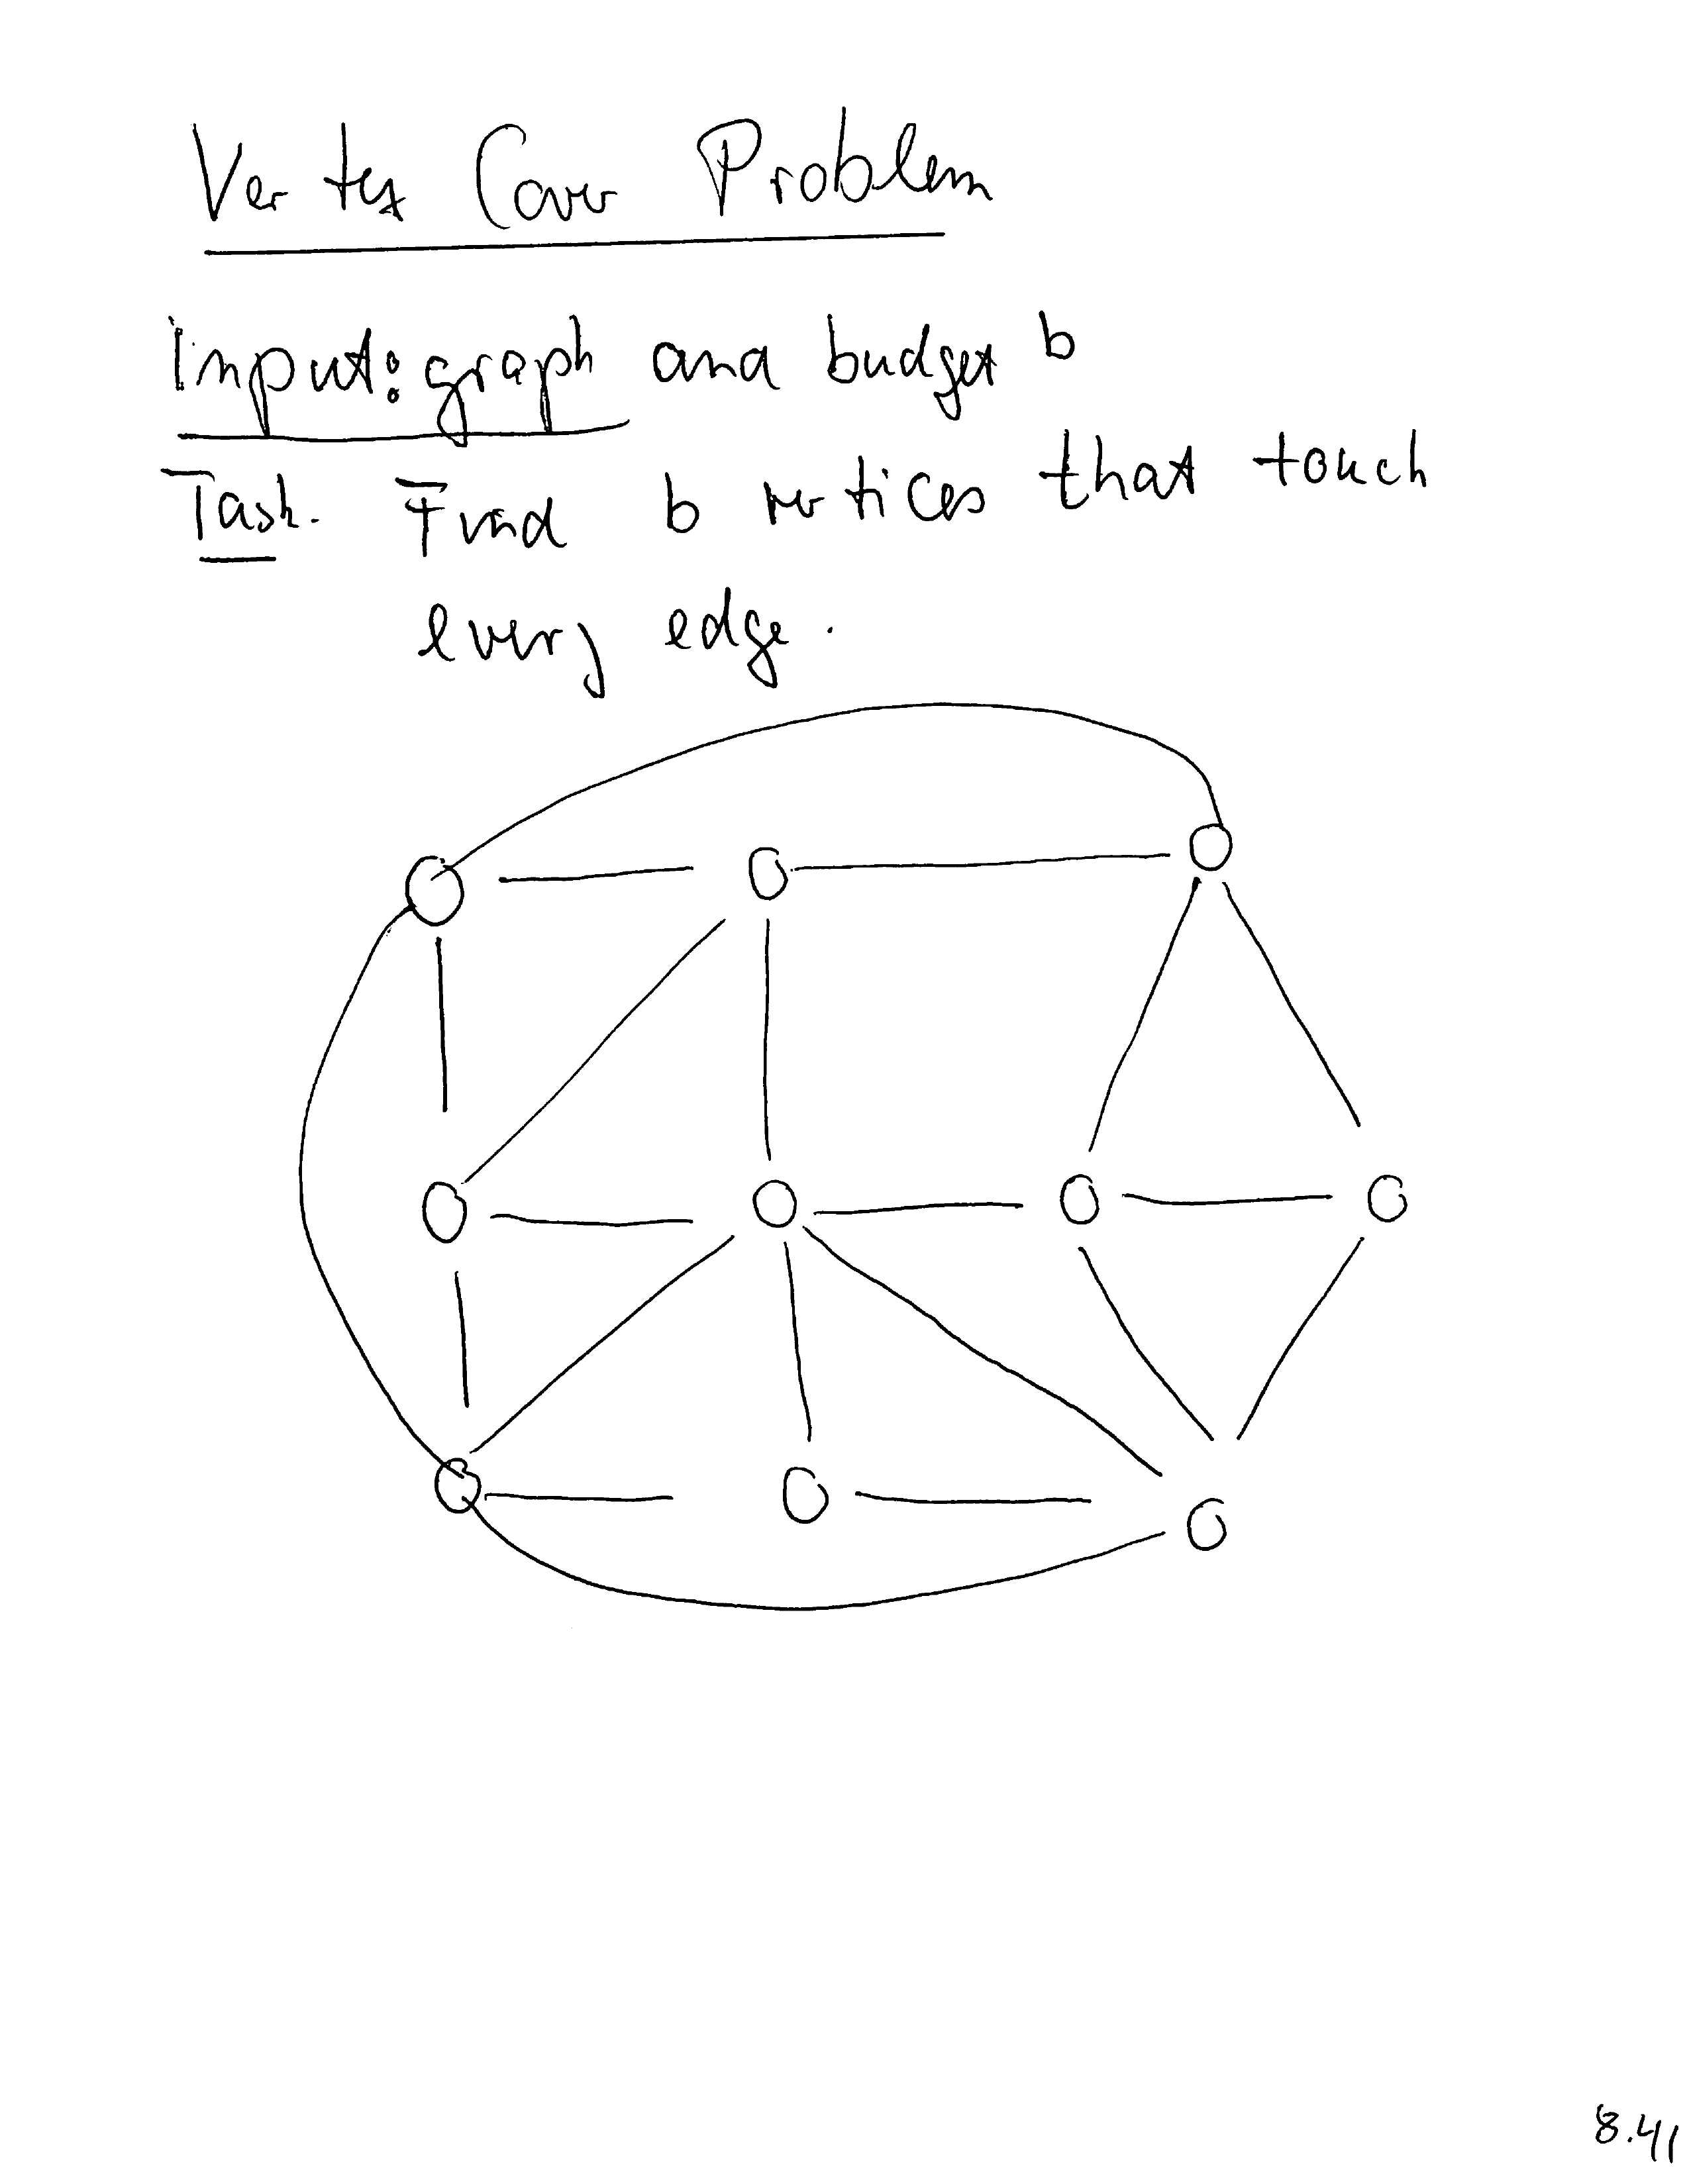 Vertex Cover Problem
Input: graph and budget b
Task. Find b vertices that touch
every edge.
8.41